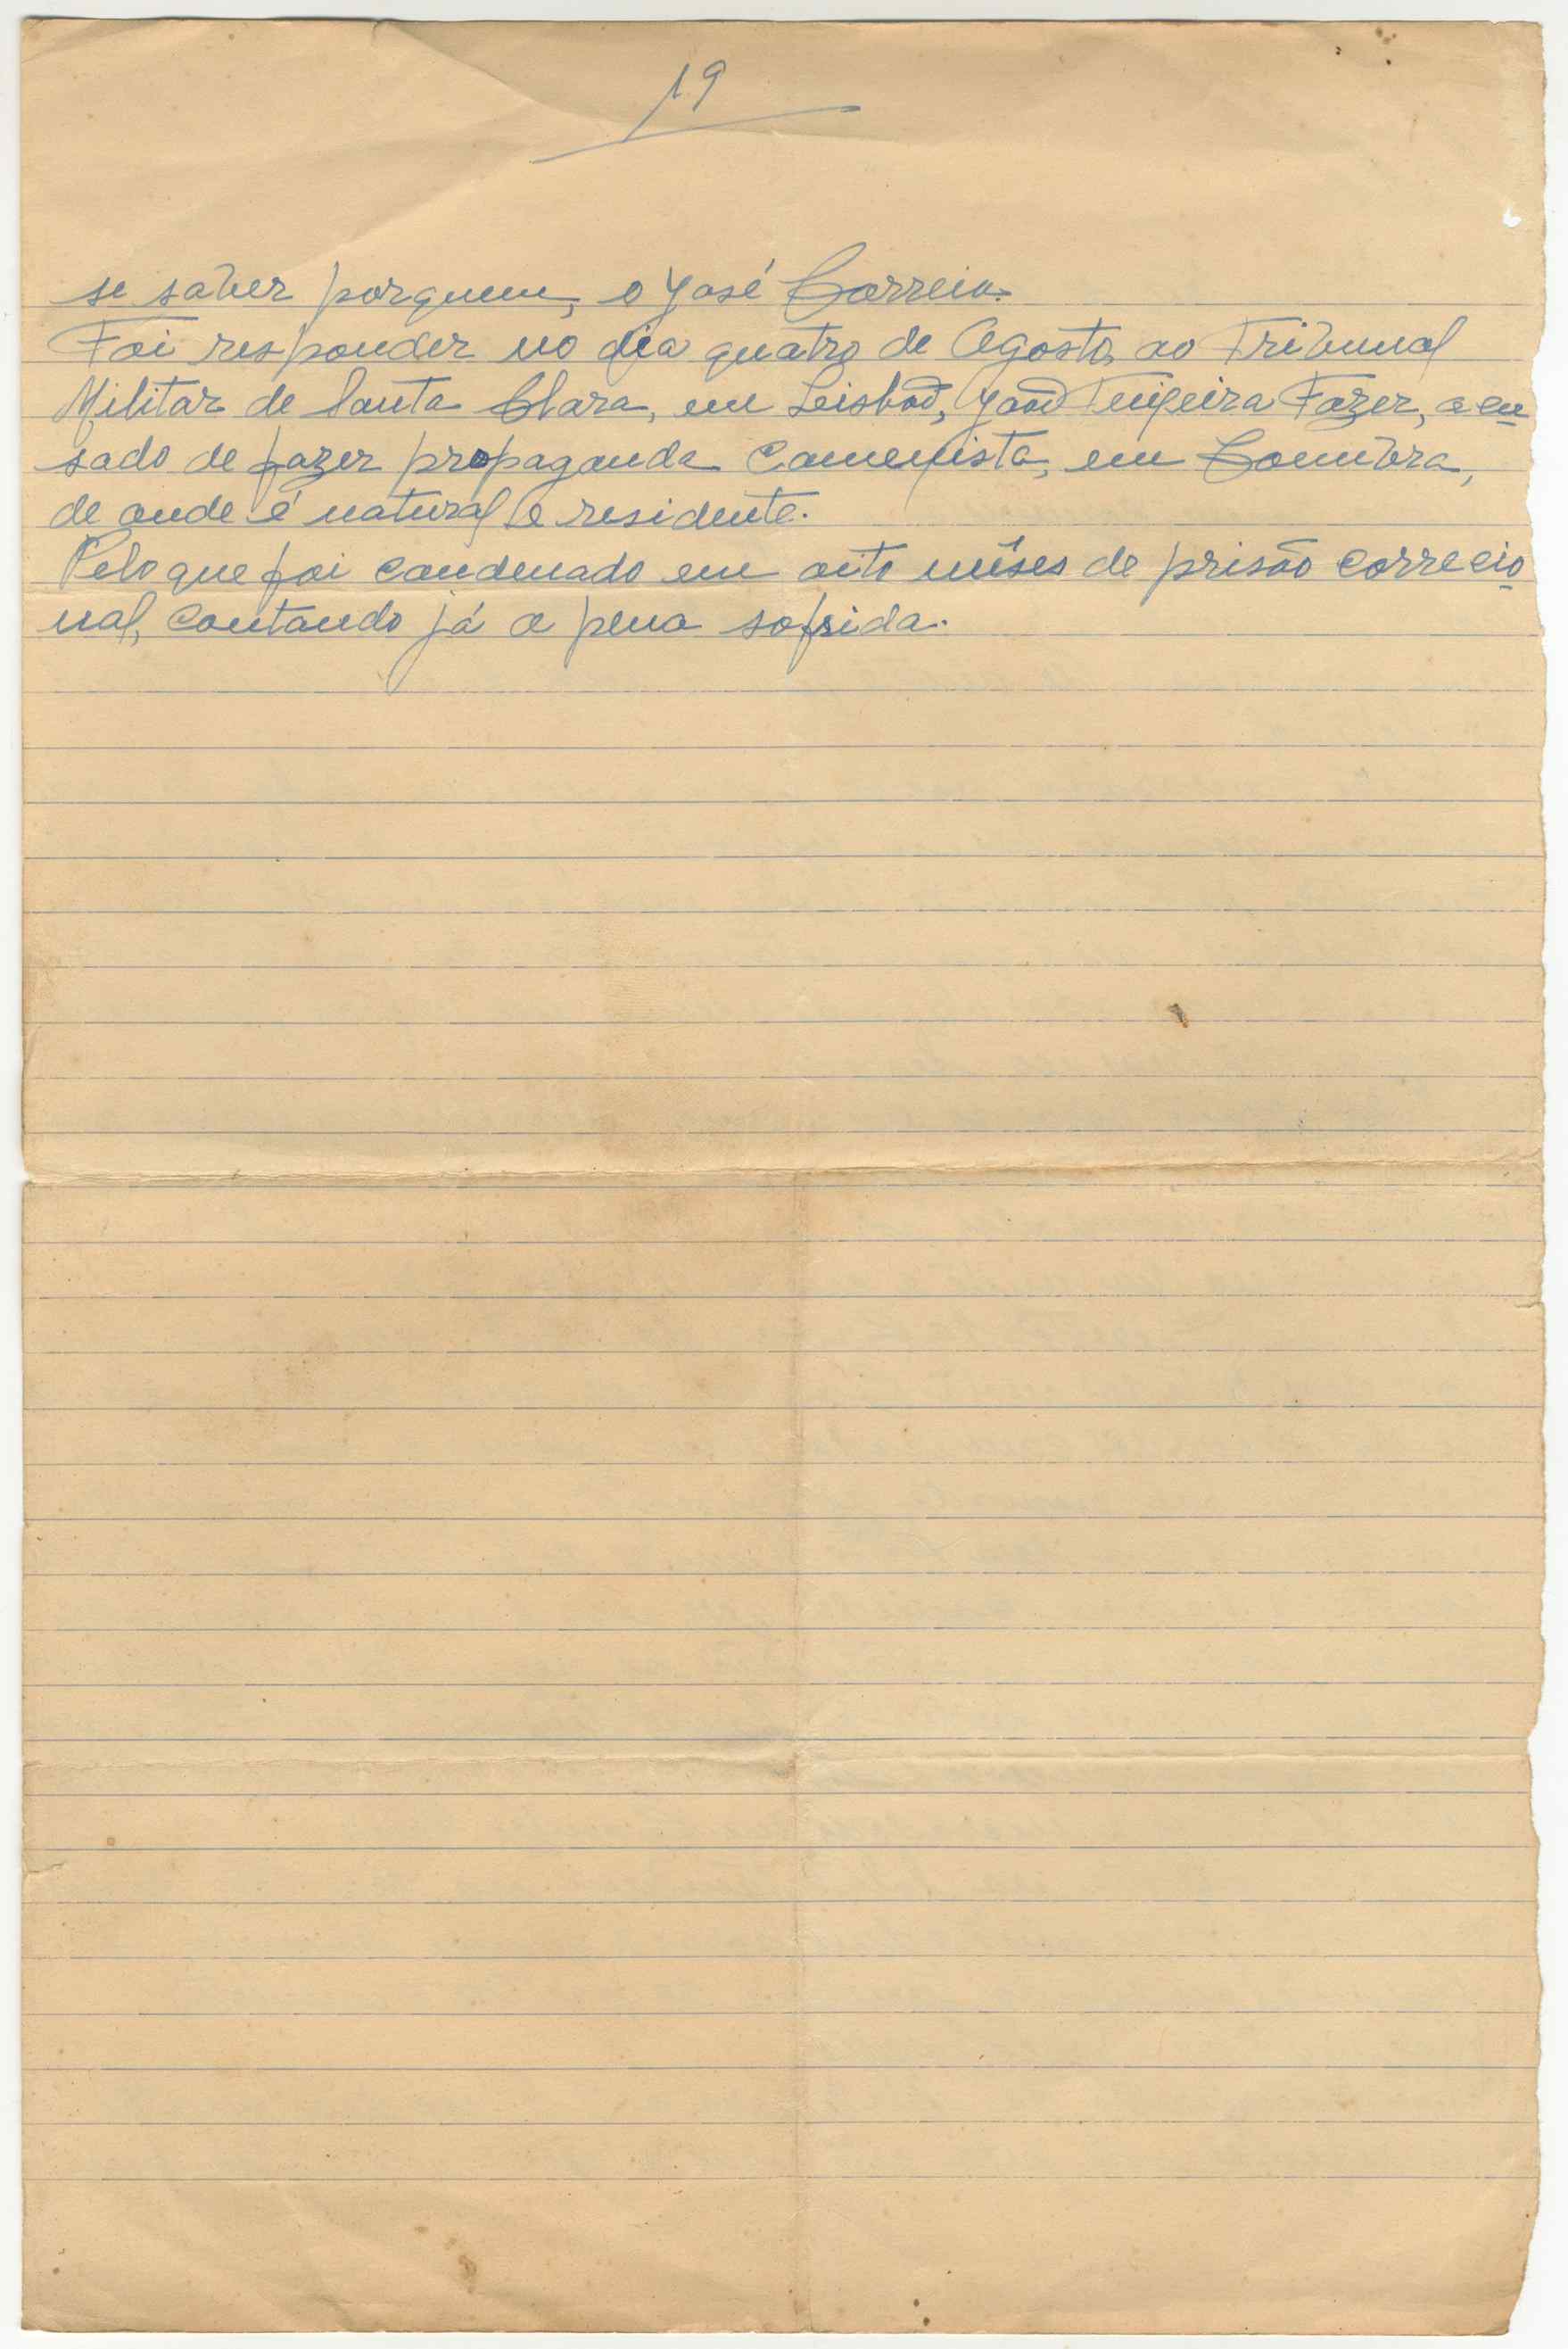 19
se saber porquem, o José Correia.
Foi responder no dia quatro de Agosto, ao Tribunal
Militar de Santa Clara, em Leisboã, João Teixeira Fazer, acu
sado de fazer propaganda Comenista, em Coimbra,
de onde é natural e residente.
Pelo que foi condenado em oito mêses de prisão correcio
nal, contando já a pena sofrida.